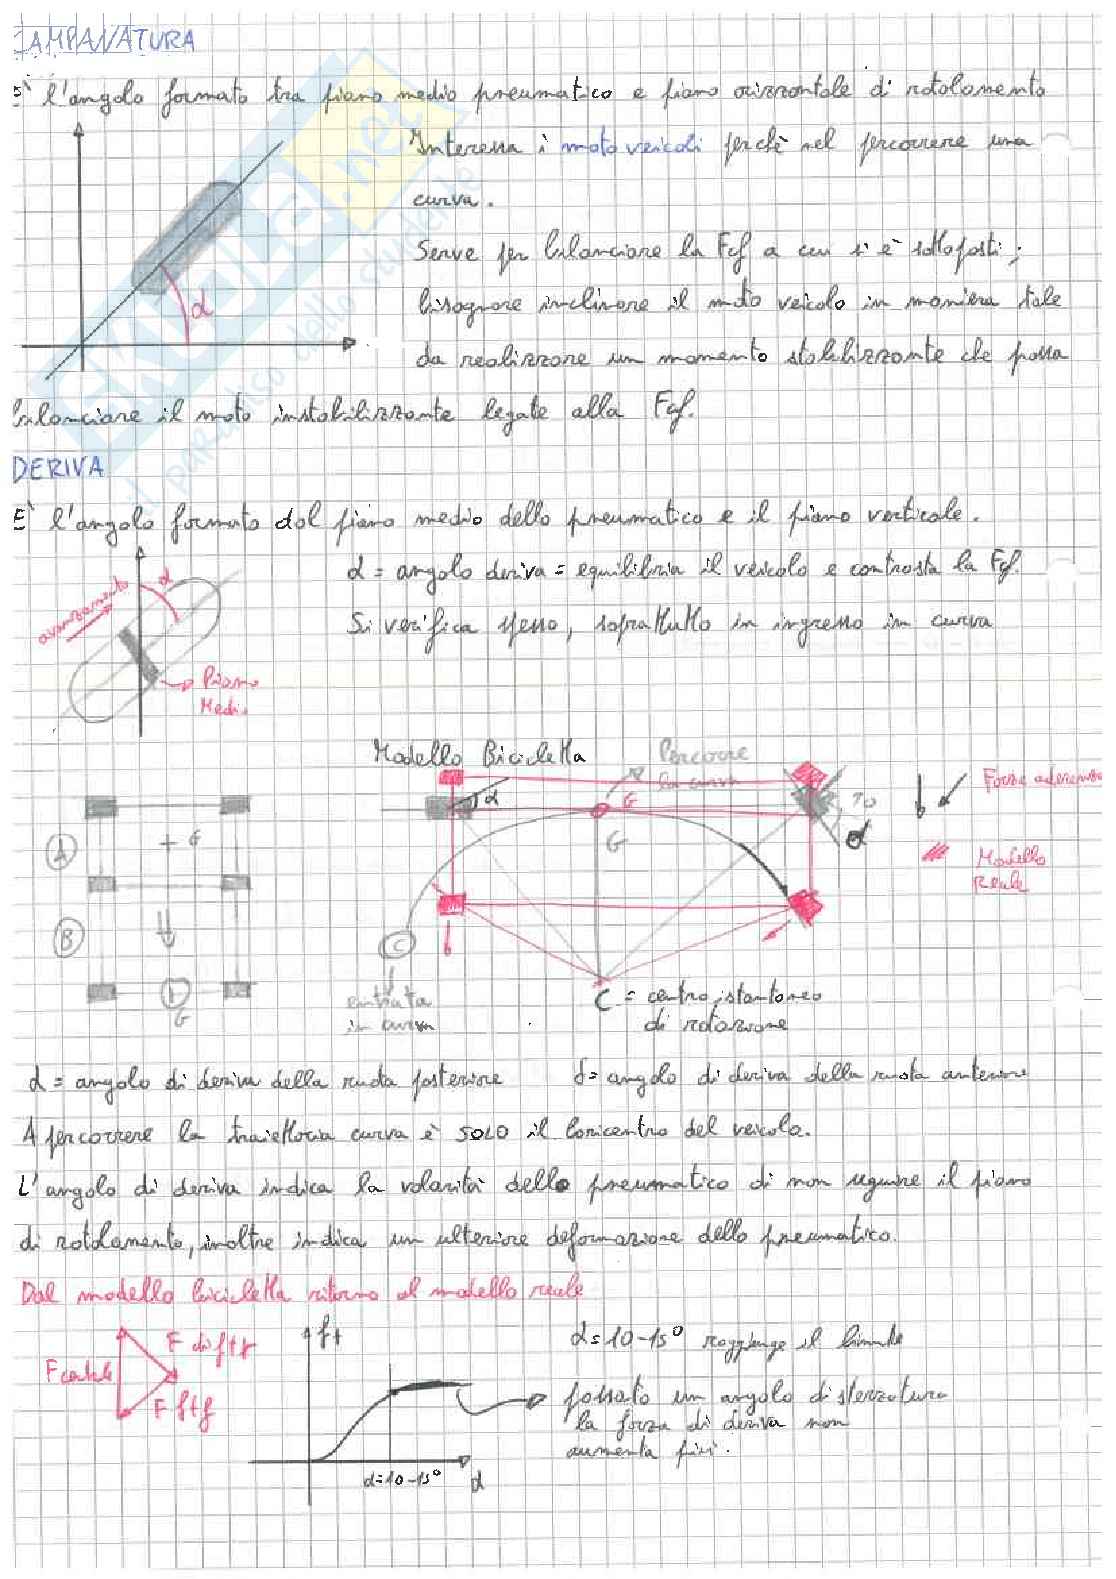 CAMPANATURA
E' l'angolo formato tra piano medio pneumatico e piano orizzontale di rotolamento
Interessa i moto veicoli perchè nel percorrere una
curva.
Serve per bilanciare la Fcf a cui si è sottoposti;
bisognare inclinare il moto veicolo in maniera tale
da realizzare un momento stabilizzante che possa
bilanciare il moto instabilizzante legate alla Fcf.
α
DERIVA
E' l'angolo formato dal piano medio dello pneumatico e il piano verticale.
α = angolo deriva = equilibria il veicolo e contrasta la Fcf.
Si verifica spesso, soprattutto in ingresso in curva
avanzamento
α
Piano
Medio
Modello Bicicletta
Percorre
la curva
α
G
G
α
Forza aderenza
Modello
Reale
A
B
G
G
C
entrata
in curva
C = centro istantaneo
di rotazione
α = angolo di deriva della ruota posteriore
δ = angolo di deriva della ruota anteriore
A percorrere la traiettoria curva è SOLO il baricentro del veicolo.
L'angolo di deriva indica la volontà dello pneumatico di non seguire il piano
di rotolamento, inoltre indica un ulteriore deformazione dello pneumatico.
Dal modello bicicletta ritorno al modello reale
F
F
ft
α
α=10-15°
α=10-15° raggiunge il limite
passato un angolo di sterzatura
la forza di deriva non
aumenta più.
ekuola.net
il paradiso dello studente